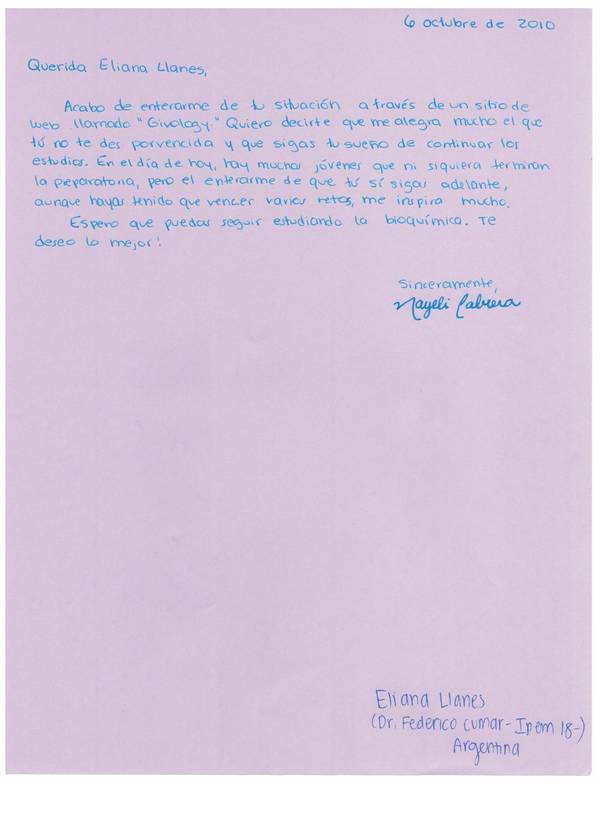 6 octubre de 2010
Querida Eliana Llanes,
Acabo de enterarme de tu situación a través de un sitio de
web llamado "Givology." Quiero decirte que me alegra mucho el que
tú no te des por vencida y que sigas tu sueño de continuar los
estudios. En el día de hoy, hay muchos jóvenes que ni siquiera terminan
la preparatoria, pero el enterarme de que tú sí sigas adelante,
aunque hayas tenido que vencer varios retos, me inspira mucho.
Espero que puedas seguir estudiando la bioquímica. Te
deseo lo mejor!
Sinceramente,
Nayeli Cabrera
Eliana Llanes
(Dr. Federico Cumar- Ipem 18-)
Argentina